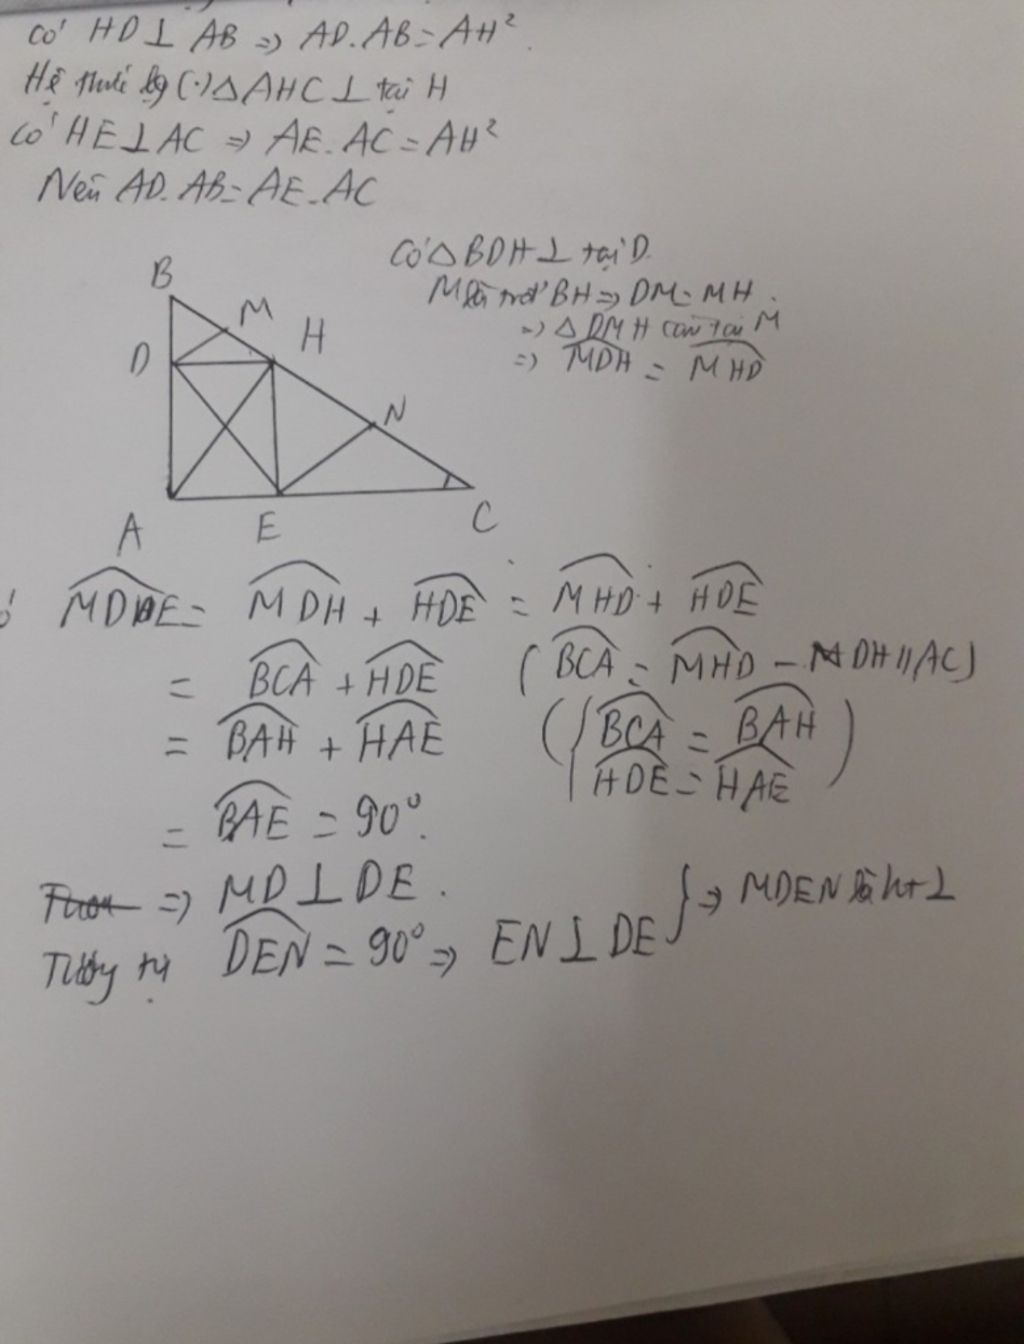 Có HD⊥ AB => AD.AB=AH².
Hệ thức lg (·) △AHC⊥ tại H
Có HE⊥AC => AE.AC=AH²
Nên AD.AB=AE.AC
Có △BDH⊥ tại D.
M là trđ BH=> DM=MH.
=> △DMH cân tại M
=> MDH = MHD
B
M
H
D
N
A
E
C
MDE= MDH + HDE = MHD + HDE
= BCA + HDE (BCA = MHD - DH//AC)
= BAH + HAE (BCA = BAH
HDE = HAE)
= BAE = 90°.
=> MD⊥DE.
Tương tự DEN = 90° => EN⊥DE } => MDEN là ht⊥